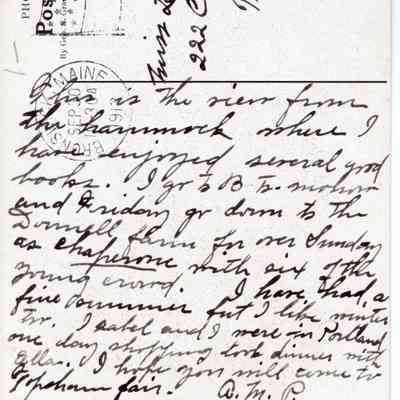 PHO
Pos
By Geo. S. Gra
MAINE
SEP
3
Miss
222 C
This is the view from
the hammock where I
have enjoyed several good
books. I go to B to-morrow
and Friday go down to the
Donnell farm for over Sunday
as chaperone with six of the
young crowd. I have had a
fine summer but I like winter
too. Isabel and I were in Portland
one day shopping took dinner with
Ella. I hope you will come to
Topsham fair. A. M. P.